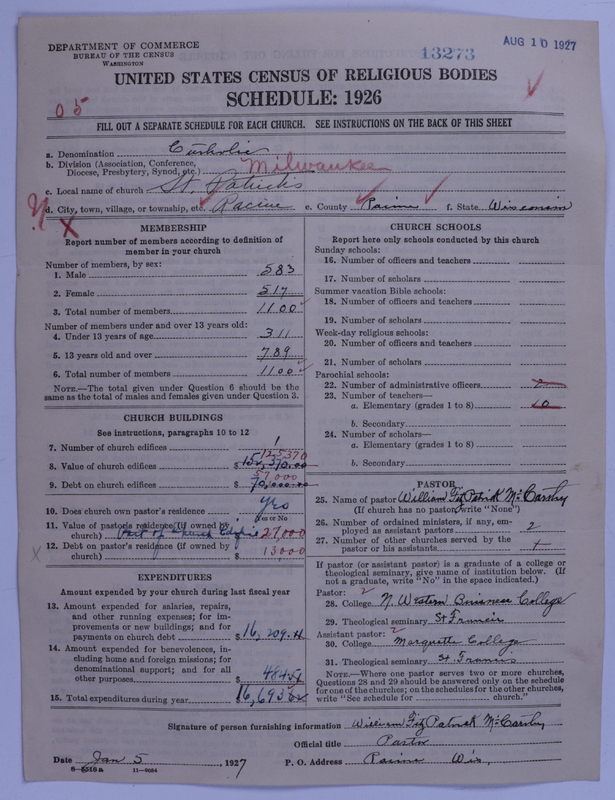 DEPARTMENT OF COMMERCE
BUREAU OF THE CENSUS
WASHINGTON
13273
AUG 10 1927
UNITED STATES CENSUS OF RELIGIOUS BODIES
SCHEDULE: 1926
05
FILL OUT A SEPARATE SCHEDULE FOR EACH CHURCH. SEE INSTRUCTIONS ON THE BACK OF THIS SHEET
a. Denomination Catholic
b. Division (Association, Conference, Diocese, Presbytery, Synod, etc.) Milwaukee
c. Local name of church St. Patricks
d. City, town, village, or township, etc. Racine e. County Racine f. State Wisconsin
MEMBERSHIP
Report number of members according to definition of
member in your church
Number of members, by sex:
1. Male 583
2. Female 517
3. Total number of members 1100
Number of members under and over 13 years old:
4. Under 13 years of age 311
5. 13 years old and over 789
6. Total number of members 1100
NOTE.—The total given under Question 6 should be the
same as the total of males and females given under Question 3.
CHURCH BUILDINGS
See instructions, paragraphs 10 to 12
7. Number of church edifices 1
125370
8. Value of church edifices $ 152,370.00
57000
9. Debt on church edifices $ 70,000.00
10. Does church own pastor's residence yes
Yes or No
11. Value of pastor's residence (if owned by
church) Part of Church Edifice $ 27,000
12. Debt on pastor's residence (if owned by
church) $ 13000
EXPENDITURES
Amount expended by your church during last fiscal year
13. Amount expended for salaries, repairs,
and other running expenses; for im-
provements or new buildings; and for
payments on church debt $ 16,209.
14. Amount expended for benevolences, in-
cluding home and foreign missions; for
denominational support; and for all
other purposes
15. Total expenditures during year $ 16,693
CHURCH SCHOOLS
Report here only schools conducted by this church
Sunday schools:
16. Number of officers and teachers
17. Number of scholars
Summer vacation Bible schools:
18. Number of officers and teachers
19. Number of scholars
Week-day religious schools:
20. Number of officers and teachers
21. Number of scholars
Parochial schools:
22. Number of administrative officers 2
23. Number of teachers—
a. Elementary (grades 1 to 8)
b. Secondary
24. Number of scholars—
a. Elementary (grades 1 to 8)
b. Secondary
PASTOR
25. Name of pastor William FitzPatrick McCarthy
(If church has no pastor, write "None")
26. Number of ordained ministers, if any, em-
ployed as assistant pastors 2
27. Number of other churches served by the
pastor or his assistants 1
If pastor (or assistant pastor) is a graduate of a college or
theological seminary, give name of institution below. (If
not a graduate, write "No" in the space indicated.)
Pastor: 2
28. College N. Western Business College
29. Theological seminary St Francis
Assistant pastor: 2
30. College Marquette College
31. Theological seminary St Francis
NOTE.—Where one pastor serves two or more churches,
Questions 28 and 29 should be answered only on the schedule
for one of the churches; on the schedules for the other churches,
write "See schedule for church."
Signature of person furnishing information William FitzPatrick McCarthy
Official title Pastor
Date Jan 5, 1927 P. O. Address Racine Wis,
8-5516a 11-9084